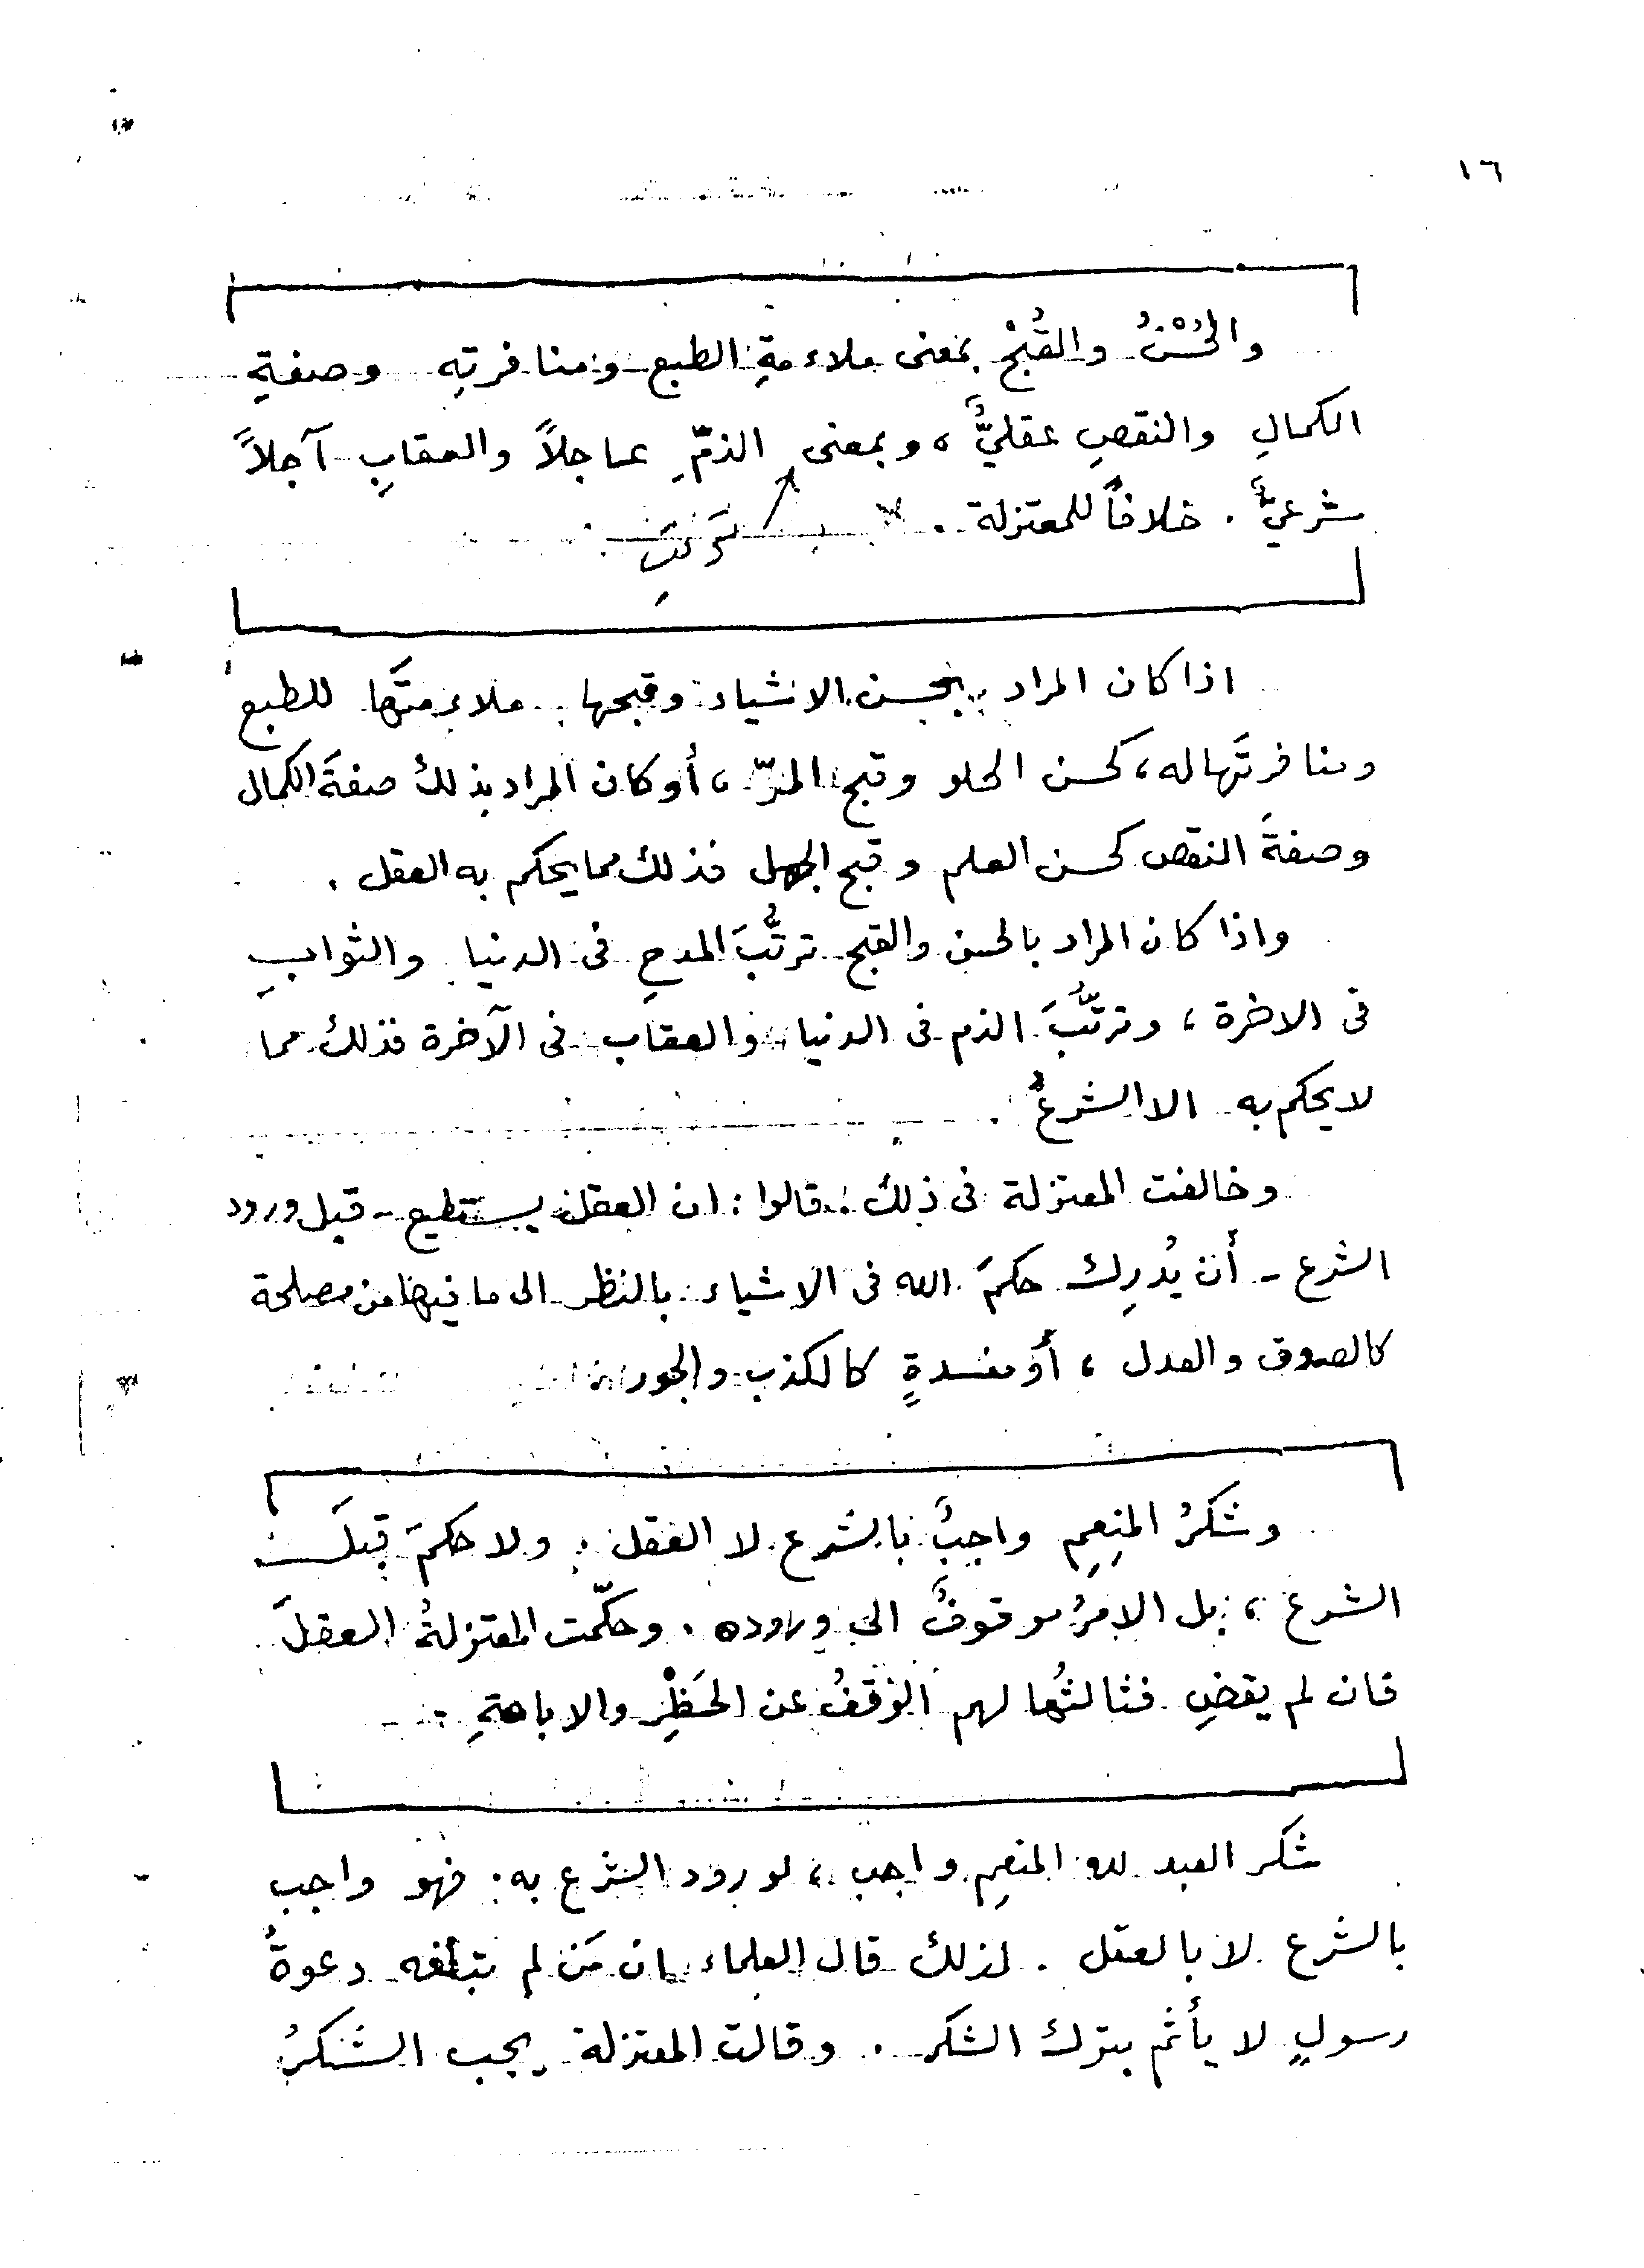 ١٦
والحُسْنُ والقُبْحُ بمعنى ملاءمةِ الطبع ومنافرتِه وصفةِ
الكمالِ والنقصِ عقليٌّ، وبمعنى الذمِّ عاجلاً والعقابِ آجلاً
شرعيٌّ. خلافاً للمعتزلة.
ترتّبِ
اذا كان المراد بحسن الاشياء وقبحها ملاءمتَها للطبع
ومنافرتَها له، كحسن الحلو وقبح المرّ، أو كان المراد بذلك صفةَ الكمال
وصفةَ النقص كحسن العلم وقبح الجهل فذلك مما يحكم به العقل.
واذا كان المراد بالحسن والقبح ترتُّبَ المدحِ فى الدنيا والثوابِ
فى الاخرة، وترتُّبَ الذم فى الدنيا والعقاب فى الآخرة فذلك مما
لا يحكم به الا الشرعُ.
وخالفت المعتزلة فى ذلك. قالوا: ان العقل يستطيع - قبل ورود
الشرع - أن يُدرِك حكمَ الله فى الاشياء بالنظر الى ما فيها من مصلحة
كالصدق والعدل، أو مفسدةٍ كالكذب والجور.
وشكرُ المنعِمِ واجبٌ بالشرع لا العقل. ولا حكمَ قبلَ
الشرع، بل الامرُ موقوفٌ الى وروده. وحكّمت المعتزلةُ العقلَ
فان لم يقضِ فثالثُها لهم الوَقفُ عن الحَظْرِ والاباحةِ.
شكر العبد لله المنعِم واجب، لورود الشرع به. فهو واجب
بالشرع لا بالعقل. لذلك قال العلماء ان مَن لم تبلغه دعوةُ
رسولٍ لا يأثم بترك الشكر. وقالت المعتزلة يجب الشكرُ